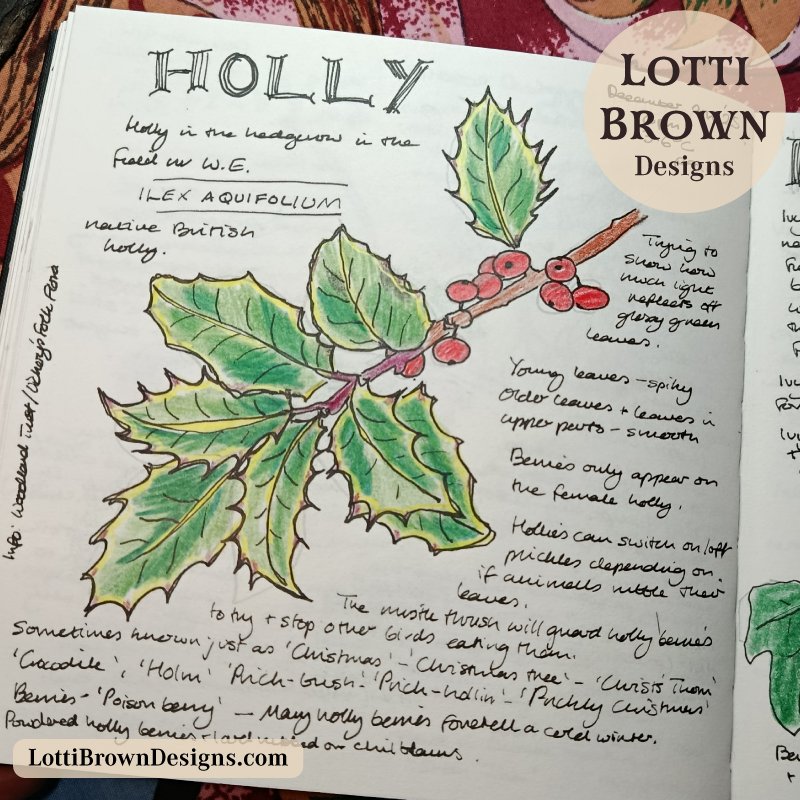 HOLLY
LOTTI
BROWN
Designs
Holly in the hedgerow in the
field nr W.E.
ILEX AQUIFOLIUM
native British
holly.
Trying to
show how
much light
reflects off
glossy green
leaves.
Young leaves - spiky
Older leaves + leaves in
upper parts - smooth
Berries only appear on
the female holly.
Hollies can switch on/off
prickles depending on
if animals nibble their
leaves.
The mistle thrush will guard holly berries
to try + stop other birds eating them.
Sometimes known just as 'Christmas' - 'Christmas tree' - 'Christ's Thorn'
'Crocodile', 'Holm' 'Prick-bush' - 'Prick-hollin' - 'Prickly Christmas'
Berries - 'Poison berry' — Many holly berries foretell a cold winter.
Powdered holly berries + lard rubbed on chilblains.
Info: Woodland Trust/
Folk Flora
LottiBrownDesigns.com